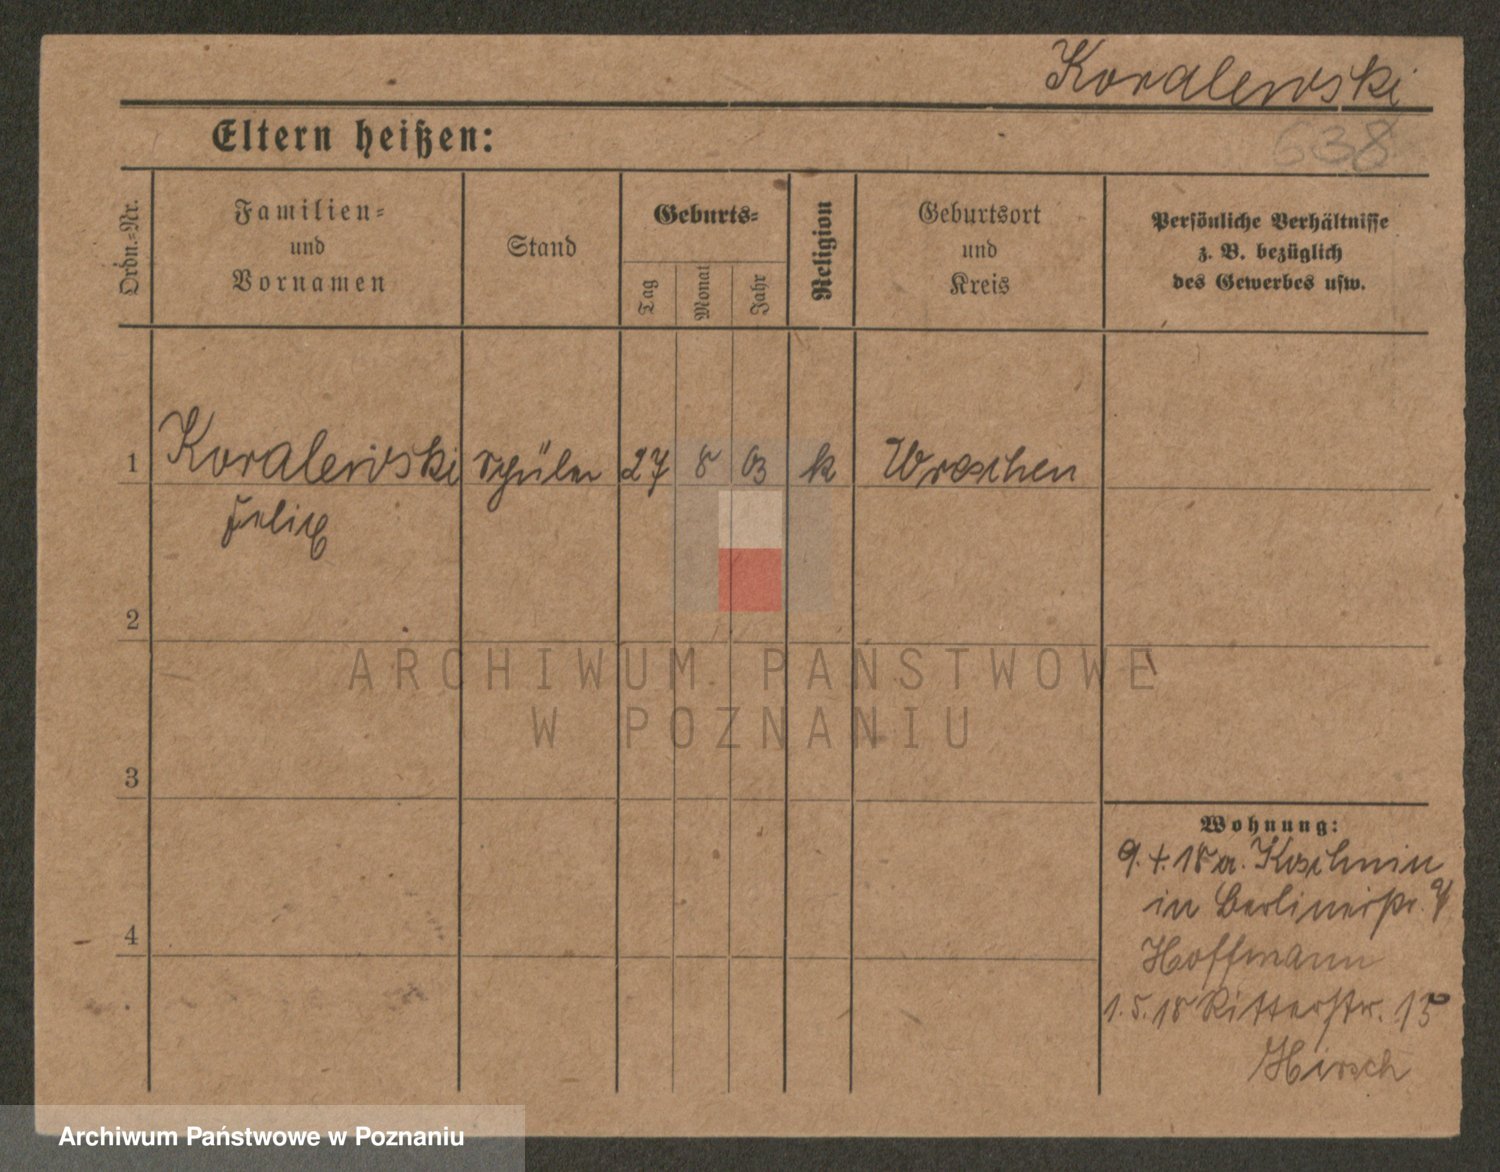 Koralewski
Eltern heißen:
638
Ordn.-Nr.
Familien-
und
Vornamen
Stand
Geburts-
Tag
Monat
Jahr
Religion
Geburtsort
und
Kreis
Persönliche Verhältnisse
z. B. bezüglich
des Gewerbes usw.
1 Koralewski Schüler 27 8 03 k Wreschen
Felix
2
3
4
Wohnung:
9. 4. 18 a. Koschmin
in Berlinerstr. 9
Hoffmann
1. 5. 18 Ritterstr. 15
Hirsch
ARCHIWUM PAŃSTWOWE
W POZNANIU
Archiwum Państwowe w Poznaniu